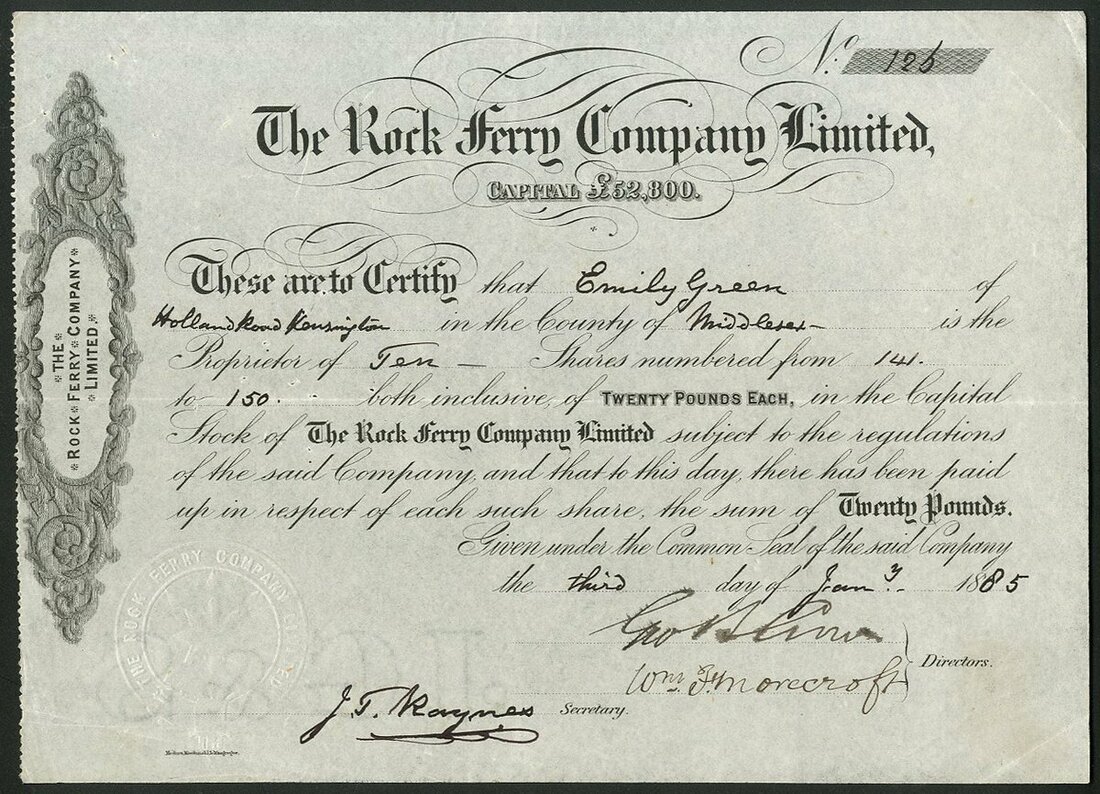 No. 126
The Rock Ferry Company Limited,
CAPITAL £52,800.
These are to Certify that Emily Green of
Holland Road Kensington in the County of Middlesex is the
Proprietor of Ten Shares numbered from 141.
to 150. both inclusive, of TWENTY POUNDS EACH, in the Capital
Stock of The Rock Ferry Company Limited subject to the regulations
of the said Company, and that to this day, there has been paid
up in respect of each such share, the sum of Twenty Pounds.
Given under the Common Seal of the said Company
the third day of Jany. 1885
Geo
Wm. F. Morecroft
Directors.
J. T. Raynes Secretary.
THE
ROCK FERRY COMPANY
LIMITED.
THE ROCK FERRY COMPANY